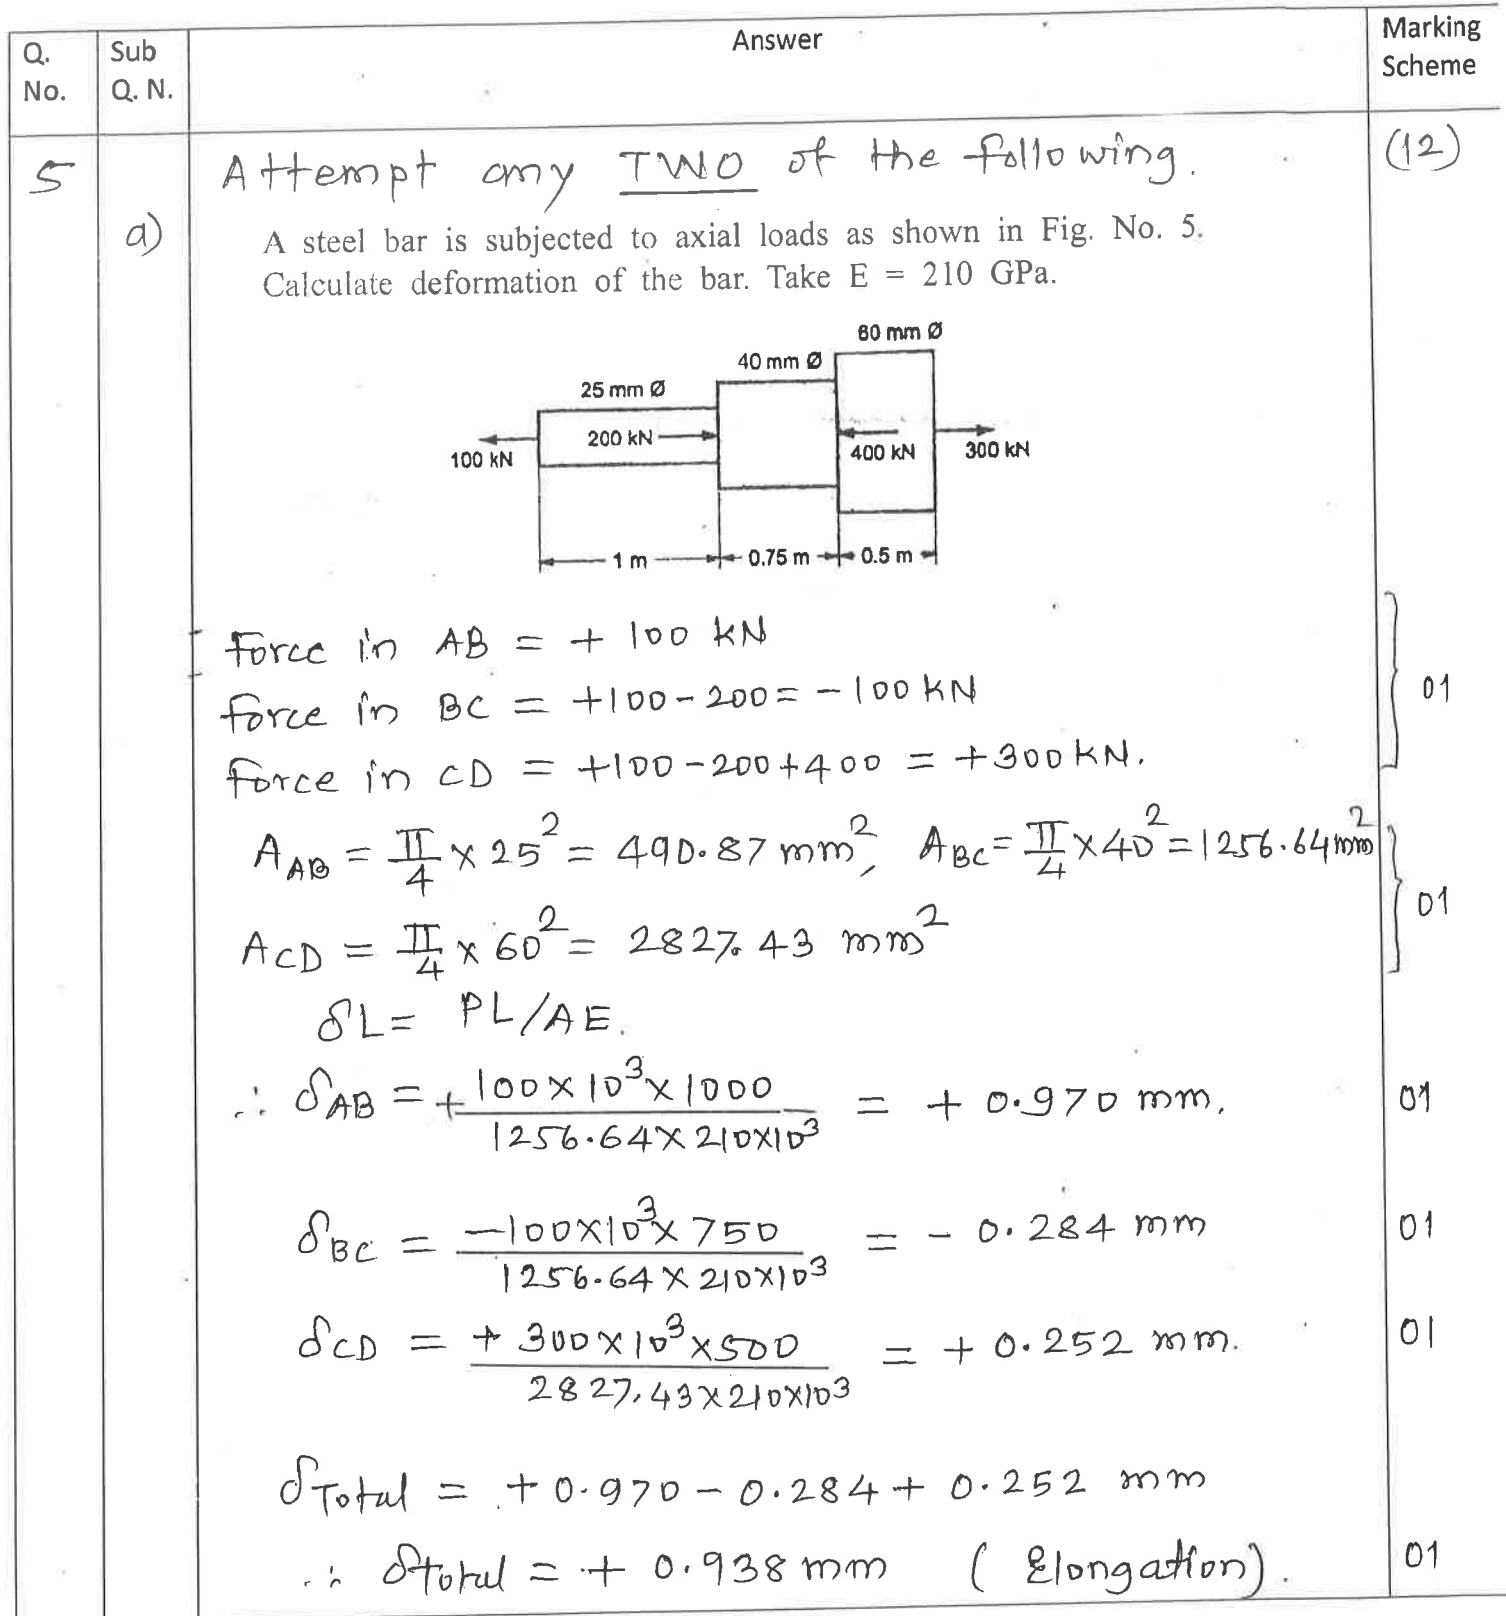 Q. No.
Sub Q. N.
Answer
Marking Scheme
5
Attempt any TWO of the following.
(12)
a)
A steel bar is subjected to axial loads as shown in Fig. No. 5.
Calculate deformation of the bar. Take E = 210 GPa.
60 mm Ø
40 mm Ø
25 mm Ø
200 kN
100 kN
400 kN
300 kN
1 m
0.75 m
0.5 m
Force in AB = + 100 kN
Force in BC = +100-200 = -100 KN
01
Force in CD = +100-200+400 = +300 KN.
A_AB = π/4 × 25² = 490.87 mm², A_BC = π/4 × 40² = 1256.64 mm²
01
A_CD = π/4 × 60² = 2827.43 mm²
δL = PL/AE.
∴ δ_AB = + 100×10³×1000 / 1256.64×210×10³ = + 0.970 mm.
01
δ_BC = -100×10³×750 / 1256.64×210×10³ = - 0.284 mm
01
δ_CD = + 300×10³×500 / 2827.43×210×10³ = + 0.252 mm.
01
δTotal = + 0.970 - 0.284 + 0.252 mm
∴ δTotal = + 0.938 mm (Elongation).
01